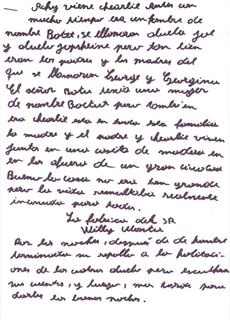 - Achy viene chearlie antes con
mucho tiempo era un hombre de
nombre Botes, se llamaron duelo jol
y duelo josheine pero tan bien
eran los padres y la madres del
que se llamaron George y Georgina
El señor Botes tenia una mujer
de nombre Bocket pero tambien
era charlie esta en
la madre y el padre y charlie viven
junto en una casita de madera en
en las afueras de un gran
Bueno la casa no era tan grande
pero la vida resultaba realmente
incomodo para todos.
La fabrica del SR
Willy Wonka
Por las noches, después de de
terminaba su repollo a la habitaci-
ones de los cuatro duelo para escuchar
sus cuentos, y luego, mas tarde para
darles las buenas noches.